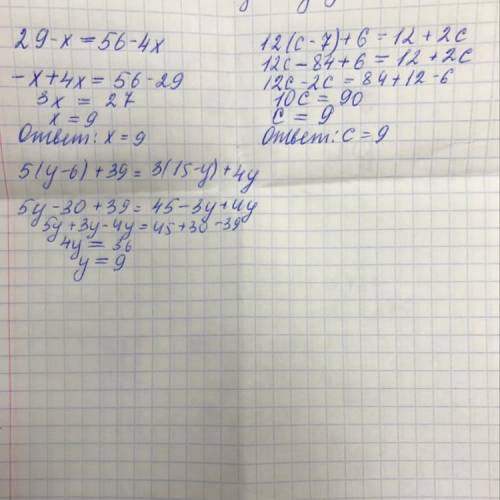 29-x=56-4x
-x+4x=56-29
3x=27
x=9
Ответ: x=9
12(c-7)+6=12+2c
12c-84+6=12+2c
12c-2c=84+12-6
10c=90
c=9
Ответ: c=9
5(y-6)+39=3(15-y)+4y
5y-30+39=45-3y+4y
5y+3y-4y=45+30-39
4y=36
y=9